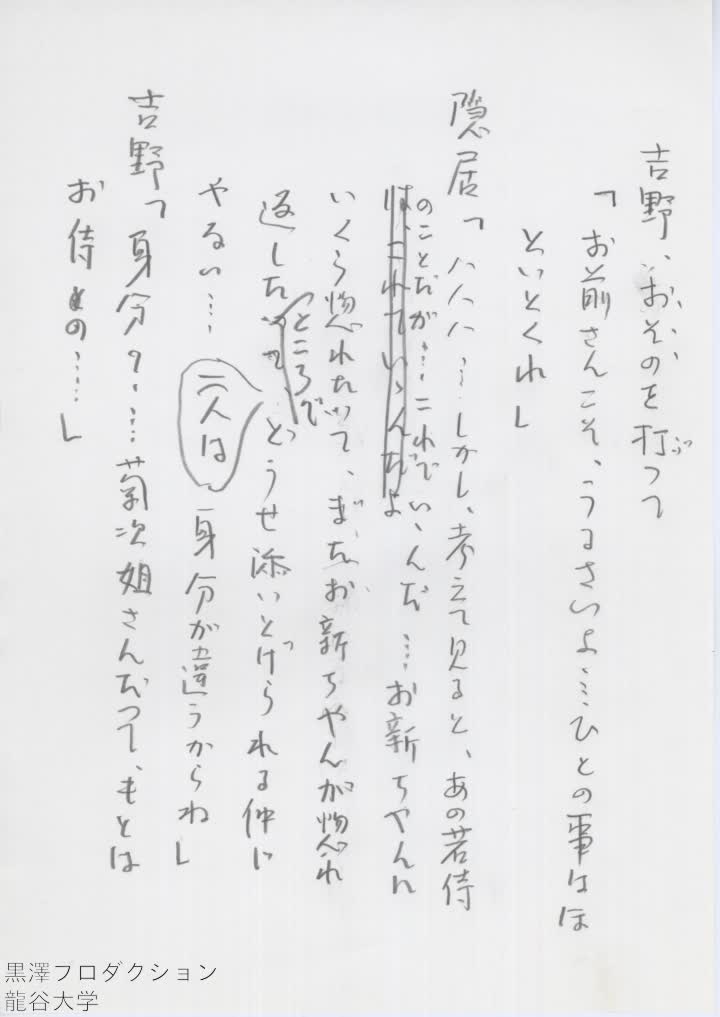 吉野、おそのを打つて
ぶ
「お前さんこそ、うるさいよ…ひとの事はほ
といとくれ」
隠居「ハハハ…しかし、考えて見ると、あの若侍
のことだが…これでいゝんだ…お新ちやんに
はこれでいゝんだよ
いくら惚れたつて、またお新ちやんが惚れ
返したつて
ところで
どうせ添いとげられる仲じ
やない…
二人は
身分が違うからね」
吉野「身分?……菊次姐さんだつて、もとは
お侍の……」
黒澤プロダクション
龍谷大学